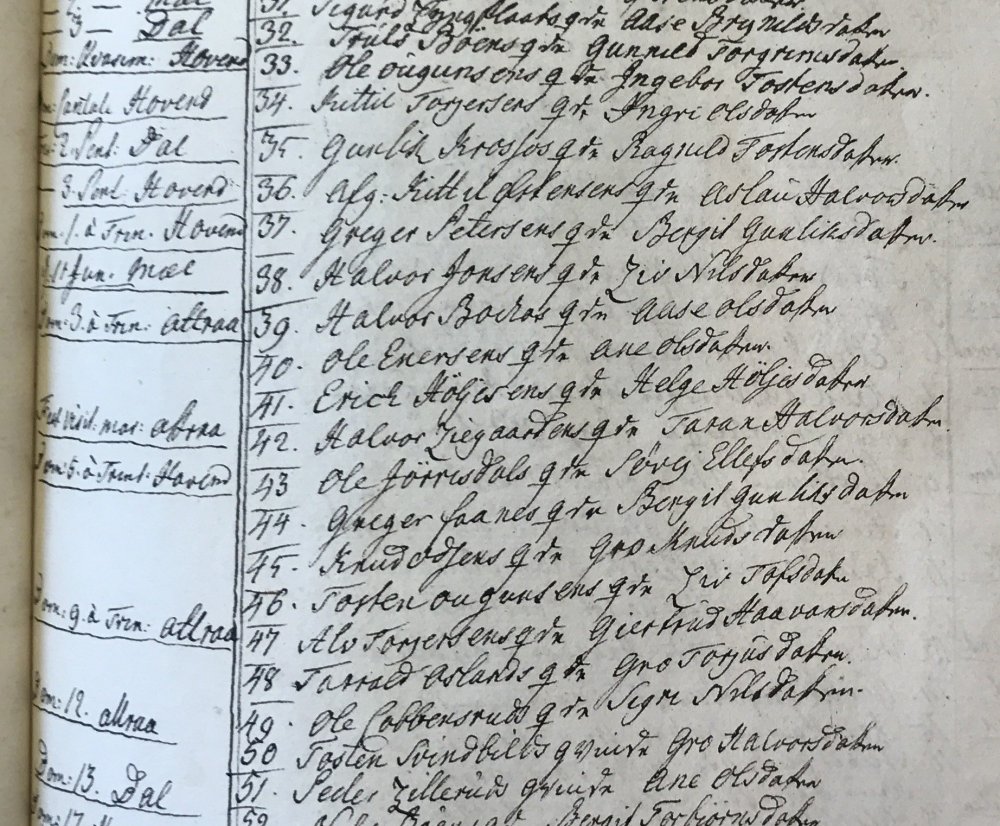 Mæl
31. Sigurd qde Aase Brynildsdatter
3 — Dal
32. Truls Böens qde Gunnild Torgrimsdatter
Dom: Qvasim: Hovend
33. Ole ougunsens qde Ingebor Tostensdatter.
Hovend
34. Kittil Torjersens qde Yngri olsdatter
2. Pent: Dal
35. Gunlik Krossos qde Ragnild Tostensdatter
— 3. Pent. Hovend
36. afg: Kittil Østensens qde aslau Halvorsdatter
Dom: 1. à Trin. Hovend
37. Greger Petersens qde Bergit Gunliksdatter.
Mæl
38. Halvor Jonsens qde Liv Nilsdatter
Dom: 3. à Trin: attraa
39. Halvor Backos qde Aase olsdatter
40. ole Enersens qde ane olsdatter.
41. Erich Höljesens qde Helge Höljesdatter
Fest visit: mar: attraa
42. Halvor Ziegaardens qde Taran Halvorsdatter.
Dom: 5. à Trinit: Hovend
43 Ole Jörrisdals qde Sövej Ellefsdatter.
44. Greger faanes qde Bergit Gunliksdatter
45. Knud odsens qde Gro Knudsdatter
46. Tosten ougunsens qde Liv Tofsdatter
Dom: 9. à Trin: attraa
47 Alv Torjersens qde Giertrud Haavorsdatter.
48 Tarrald aslands qde Gro Torjusdatter.
Dom: 12. attraa
49. Ole Cobbensruds qde Sigri Nilsdatter.
50 Tosten Svindbilds qvinde Gro Halvorsdatter
Dom: 13. Dal
51. Peder Lilleruds qvinde Ane Olsdatter
52 Bergit Torbiörnsdatter